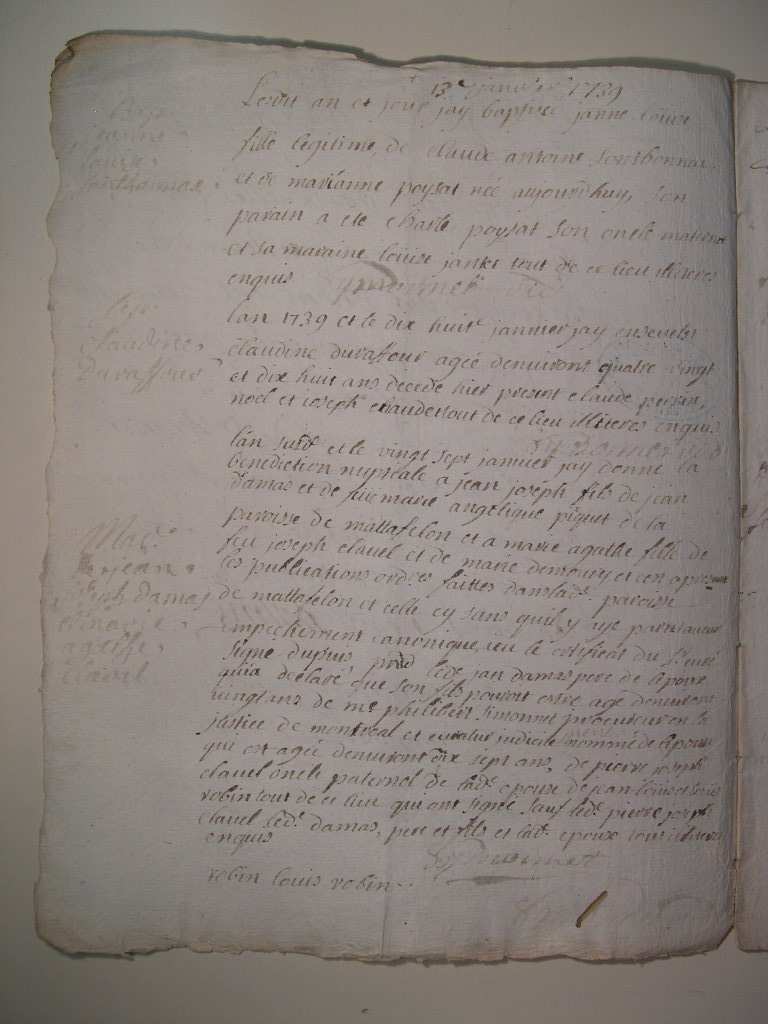 13e janvier 1739
Bap.
jeanne
louise
Ledit an et jour jay baptisé janne louise
fille legitime de claude antoine
et de marianne poysat née aujourdhuy, son
parain a ete charle poysat son oncle maternel
et sa maraine louise janet tout de ce lieu illiteres
enquis
claudine
Duraffour
lan 1739 et le dix huit janvier jay enseveli
claudine duraffour agée denviront quatre vingt
et dix huit ans decede hier present claude perrin,
noel et joseph tout de ce lieu illiteres enquis
lan susdt et le vingt sept janvier jay donné la
benediction nuptiale a jean joseph fils de jean
damas et de marie angelique piquet de la
paroisse de mattafelon et a marie agathe fille de
feu joseph clavel et de marie et ce apres
les publications faittes dans lad. paroisse
de mattafelon et celle cy sans quil y aye
empechement canonique, veu le certificat du Sr curé
signé dupuis led. jan damas pere de lepoux
qui a declaré que son fils pouvoit estre agé denviront
vingt ans de me philibert simonnet procureur en la
justice de montreal et curateur judiciel nommé de lepouse
qui est agée denviront dix sept ans, de pierre joseph
clavel oncle paternel de lad. epouse de jean louis et louis
robin tout de ce lieu qui ont signé sauf led. pierre joseph
clavel led. damas, pere et fils et lad. epouse tous illiteres
enquis
Mar.
jean
joseph damas
et marie
agathe
clavel
robin louis robin